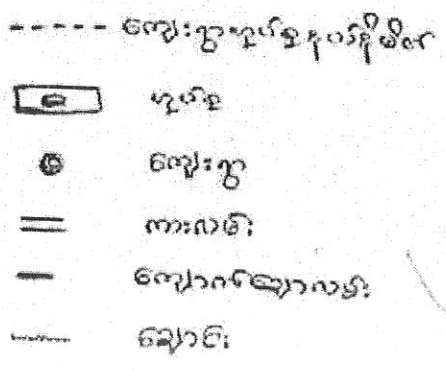 ကျေးရွာအုပ်စုနယ်နိမိတ်
အုပ်စု
ကျေးရွာ
ကားလမ်း
ကျောက်ချောလမ်း
ချောင်း